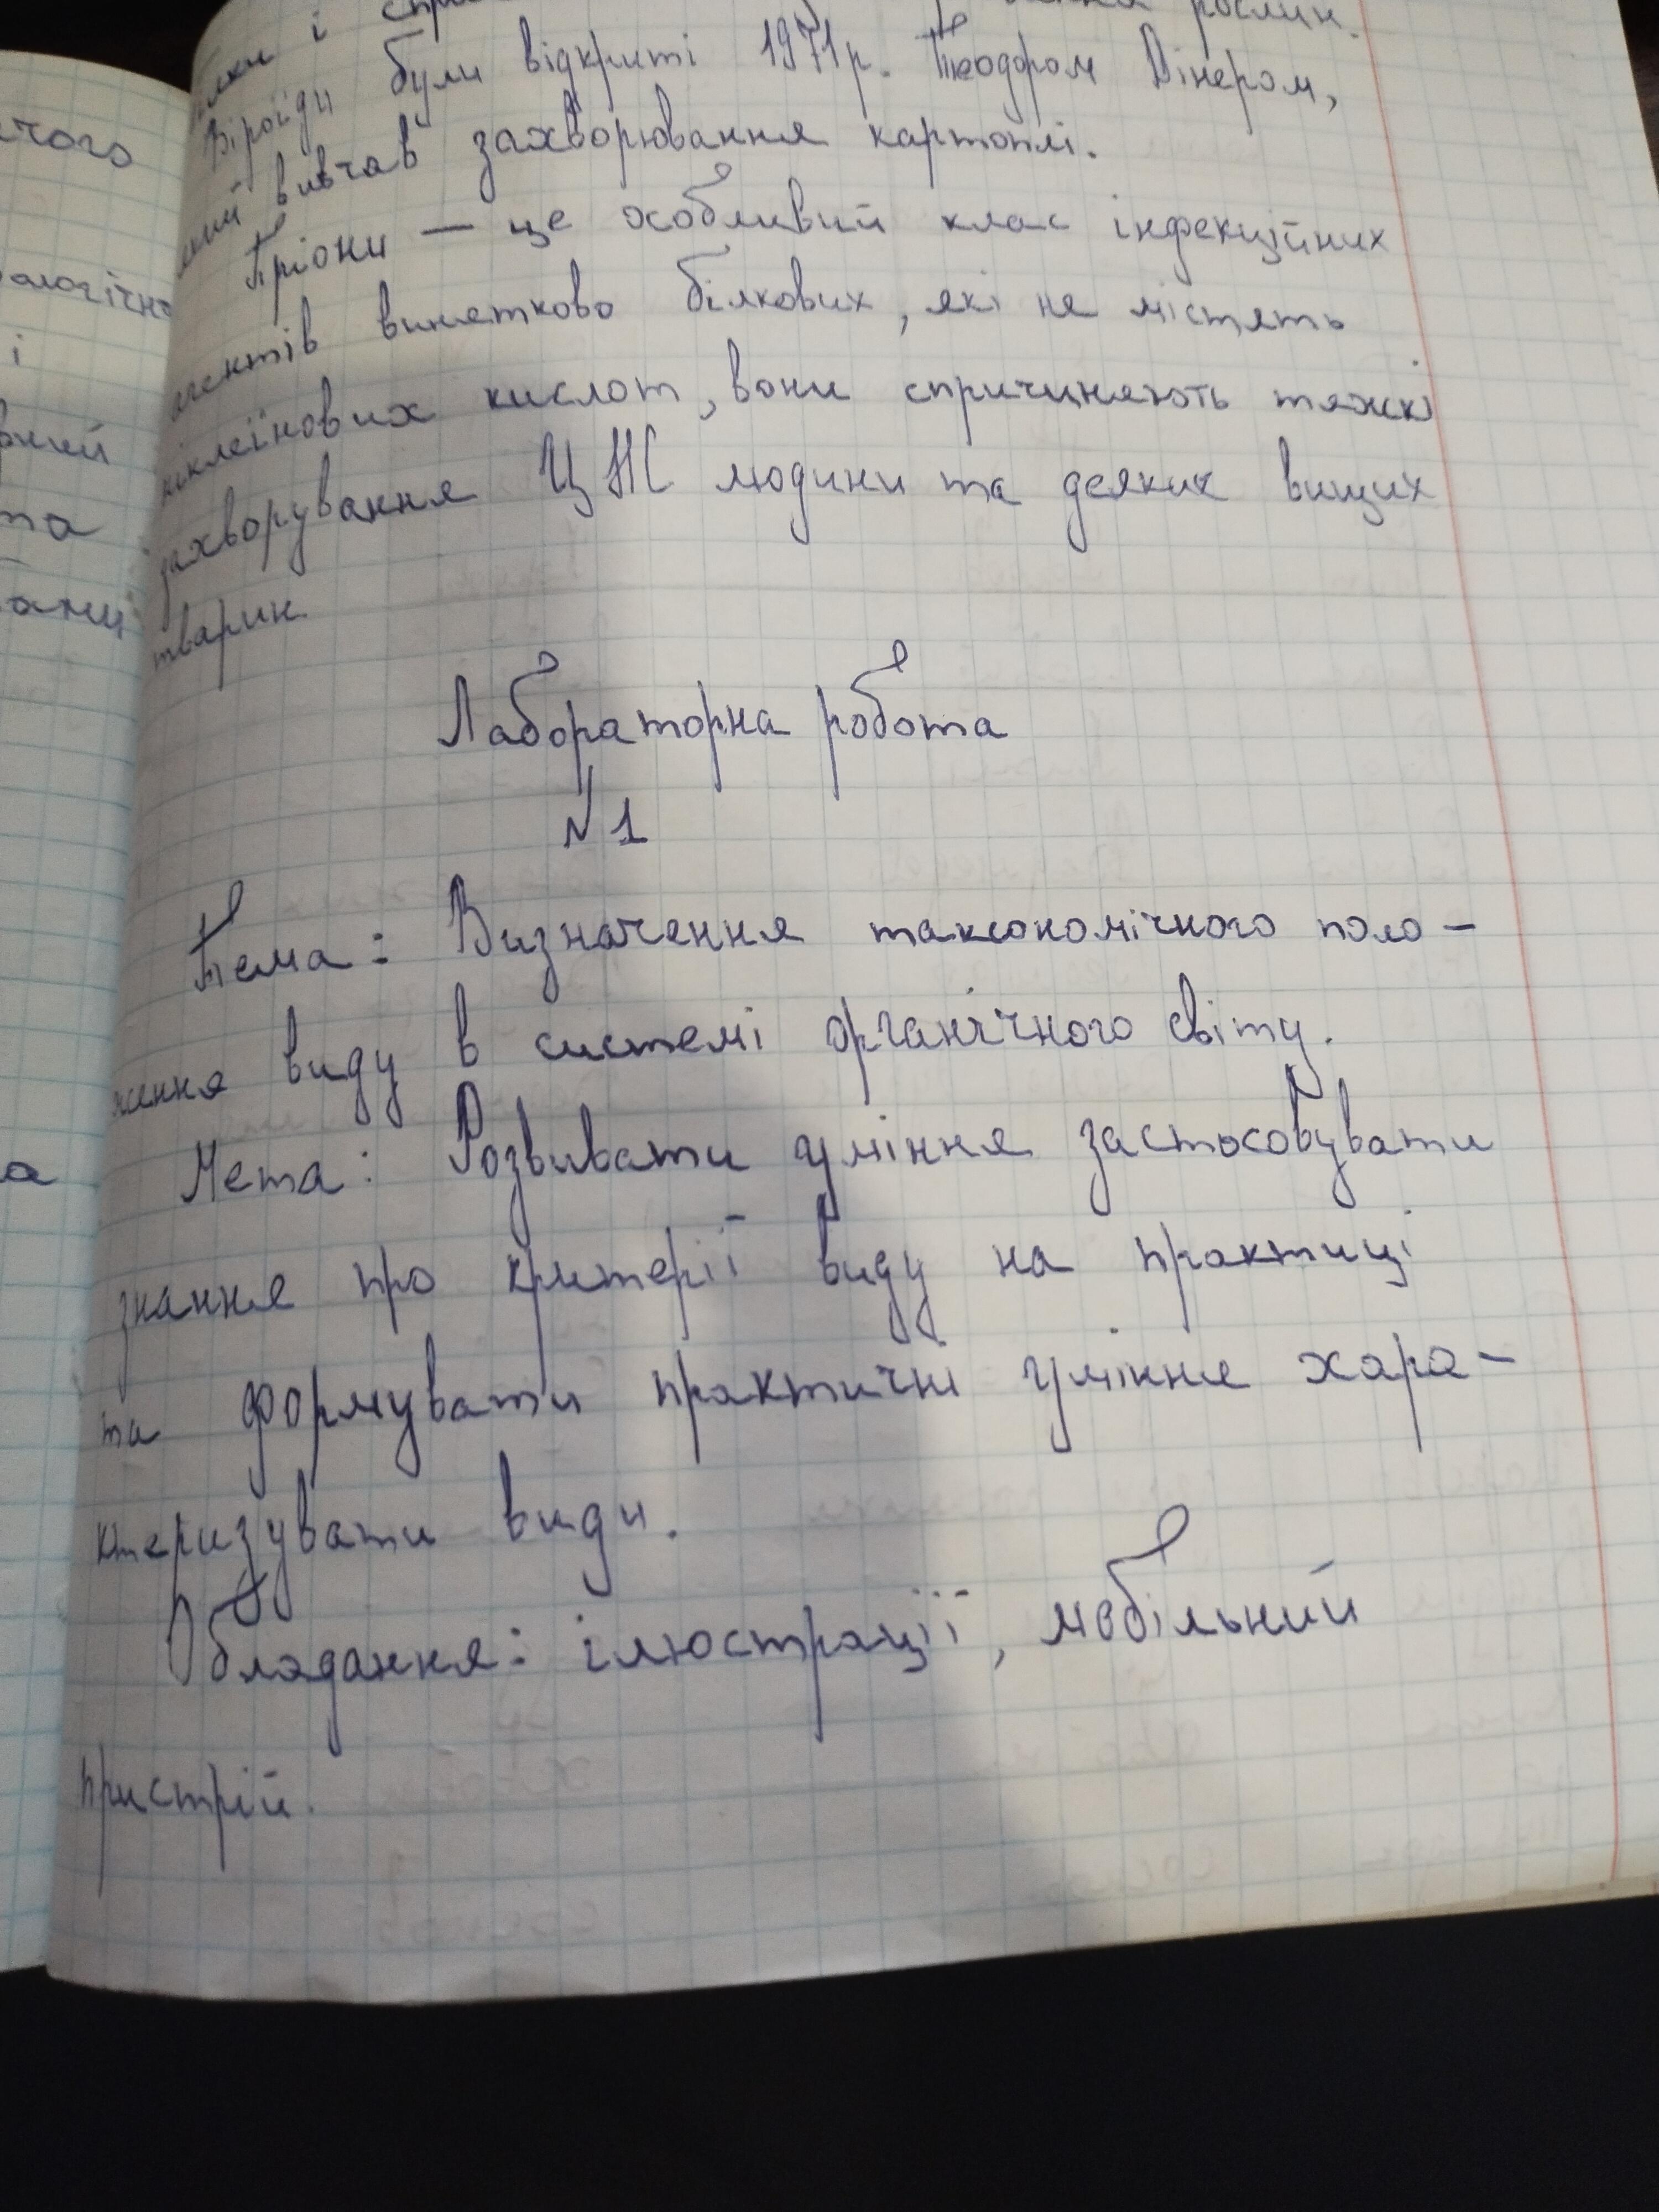 рослин.
Віроїди були відкриті 1971р. Теодором Дінером,
який вивчав захворювання картоплі.
Пріони — це особливий клас інфекційних
агентів винятково білкових, які не містять
нуклеїнових кислот, вони спричиняють тяжкі
захворування ЦНС людини та деяких вищих
тварин.
Лабораторна робота
N 1
Тема: Визначення таксономічного поло-
ження виду в системі органічного світу.
Мета: Розвивати уміння застосовувати
знання про критерії виду на практиці
та формувати практичні уміння хара-
ктеризувати види.
Обладання: ілюстрації, мобільний
пристрій.